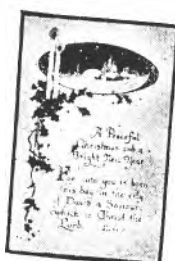 A Peaceful
Christmas and a
Bright New Year
For unto you is born
this day in the city
of David a Saviour,
which is Christ the
Lord.